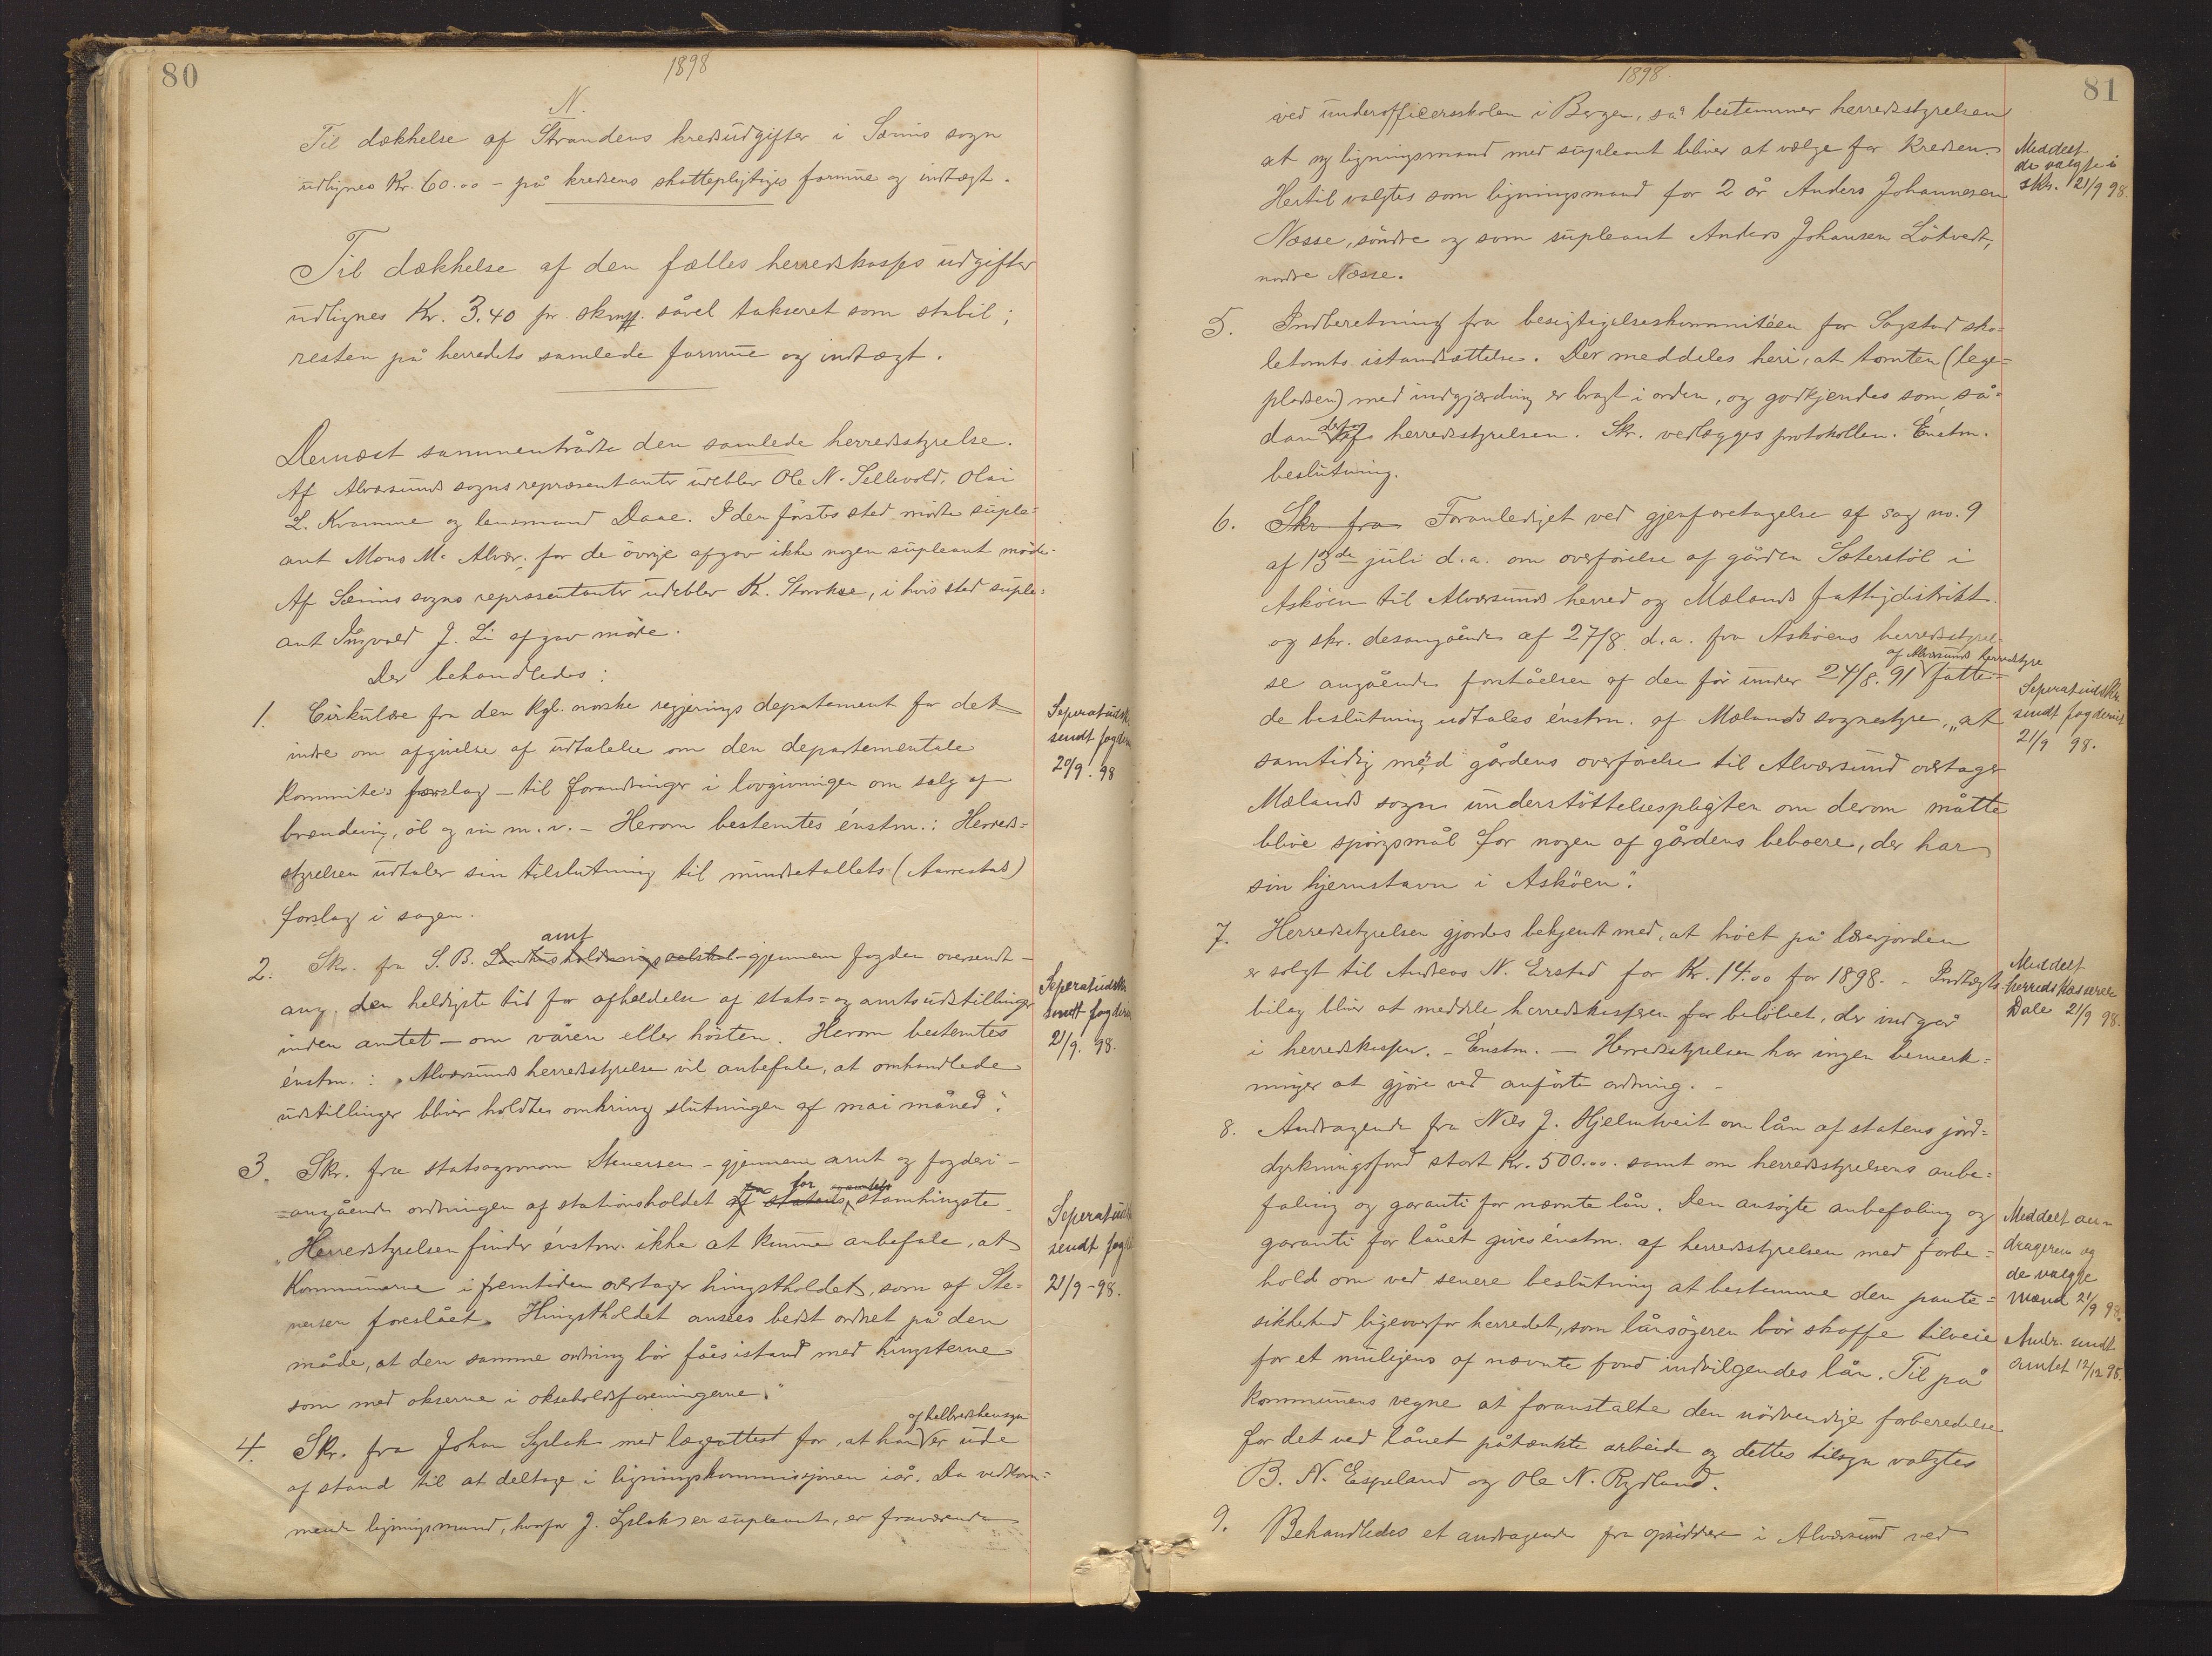 80
1898
N.
Til dækkelse af Strandens kredsudgifter i Sæims sogn
udlignes Kr. 60.00 - på kredsens skattepligtiges formue og indtægt.
Til dækkelse af den fælles herredskasses udgifter
udlignes Kr. 3.40 pr. skmsk. såvel takseret som stabil;
resten på herredets samlede formue og indtægt.
Dernæst sammentrådte den samlede herredsstyrelse.
Af Alversunds sogns repræsentanter udeblev Ole N. Sellevold, Olai
L. Kvamme og lensmand Daae. I den førstes sted mødte suple=
ant Mons M. Alver; for de øvrige afgav ikke nogen supleant møde.
Af Sæims sogns repræsentanter udeblev K. Storksæ, i hvis sted suple=
ant Ingvald J. Li afgav møde.
Der behandledes:
1. Cirkulære fra den kgl. norske regjerings departement for det
indre om afgivelse af udtalelse om den departementale
kommite's forslag - til forandringer i lovgivningen om salg af
brændevin, øl og vin m. v. - Herom bestemtes énstm.: Herreds=
styrelsen udtaler sin tilslutning til mindretallets (Aarrestads)
forslag i sagen.
Seperatudsk.
sendt fogderi
20/9. 98
2. Skr. fra S. B. Landhusholdningsselskab amt - gjennem fogden oversendt -
ang. den heldigste tid for afholdelse af stats= og amtsudstillinger
inden amtet - om våren eller høsten. Herom bestemtes
énstm.: "Alversunds herredsstyrelse vil anbefale, at omhandlede
udstillinger bliver holdtes omkring slutningen af mai måned".
Seperatudskr.
sendt fogderi
21/9. 98.
3. Skr. fra statsagronom Stenersen - gjennem amt og fogderi -
=angående ordningen af stationsholdet af statens for stamhingste.
"Herredstyrelsen finder énstm. ikke at kunne anbefale, at
kommunerne i fremtiden overtager hingstholdet, som af Ste=
nersen foreslået. Hingstholdet ansees bedst ordnet på den
måde, at den samme ordning bør fåes istand med hingsterne
som med okserne i okseholdsforeningerne."
Seperatudsk
sendt fogd
21/9 - 98.
4. Skr. fra Johan Sylak med lægeattest for, at han af helbredshensyn er ude
af stand til at deltage i ligningskommissionen iår. Da vedkom=
mende ligningsmand, hvorfor J. Sylak er supleant, er fraværende
81
1898.
ved underofficersskolen i Bergen, så bestemmer herredsstyrelsen
at ny ligningsmand med supleant bliver at vælge for kredsen.
Hertil valgtes som ligningsmand for 2 år Anders Johannesen
Næsse, søndre og som supleant Anders Johansen Låtvedt,
nordre Næsse.
Meddelt
de valgte i
skr. 21/9 98.
5. Indberetning fra besigtigelseskommitéen for Sagstad sko=
letomts istandsættelse. Der meddeles heri, at tomten (lege=
pladsen) med indgjærding er bragt i orden, og godkjendes som så=
dan derfor af herredsstyrelsen. Skr. vedlægges protokollen. Énstm.
beslutning.
6. Skr fra Foranlediget ved gjenforetagelse af sag no. 9
af 13de juli d.a. om overførelse af gården Sæterstøl i
Askøen til Alversunds herred og Mælands fattigdistrikt
og skr. desangående af 27/8 d.a. fra Askøens herredsstyrel=
se angående forståelsen af den før under 24/8. 91 af Alversunds herredstyre fatte=
de beslutning udtales énstm. af Mælands sognestyre, "at
samtidig med gårdens overførelse til Alversund overtager
Mælands sogn understøttelsespligten om derom måtte
blive spørgsmål for nogen af gårdens beboere, der har
sin hjemstavn i Askøen".
Seperatudskr.
sendt fogderiet
21/9 98.
7. Herredsstyrelsen gjordes bekjendt med, at høet på lærerjorden
er solgt til Andreas N. Erstad for Kr. 14.00 for 1898. - Indtægts
bilag bliver at meddele herredskassereren for beløbet, der indgår
i herredskassen. - Énstm. - Herredsstyrelsen har ingen bemerk=
ninger at gjøre ved anførte ordning. -
Meddelt
herredskasserer
Dale 21/9 98.
8. Andragende fra Nils J. Hjelmtveit om lån af statens jord=
dyrkningsfond stort Kr. 500.00. samt om herredsstyrelsens anbe=
faling og garanti for nævnte lån. Den ansøgte anbefaling og
garanti for lånet gives énstm. af herredsstyrelsen med forbe=
hold om ved senere beslutning at bestemme den pante=
sikkerhed ligeoverfor herredet, som lånsøgeren bør skaffe tilveie
for et muligens af nævnte fond indvilgendes lån. Til på
kommunens vegne at foranstalte den nødvendige forberedelse
for det ved lånet påtænkte arbeide og dettes tilsyn valgtes
B. N. Espeland og Ole N. Rydland.
Meddelt an=
drageren og
de valgte
mænd 21/9 98.
Andr. sendt
amtet 12/12 98.
9. Behandledes et andragende fra opsiddere i Alversund ved